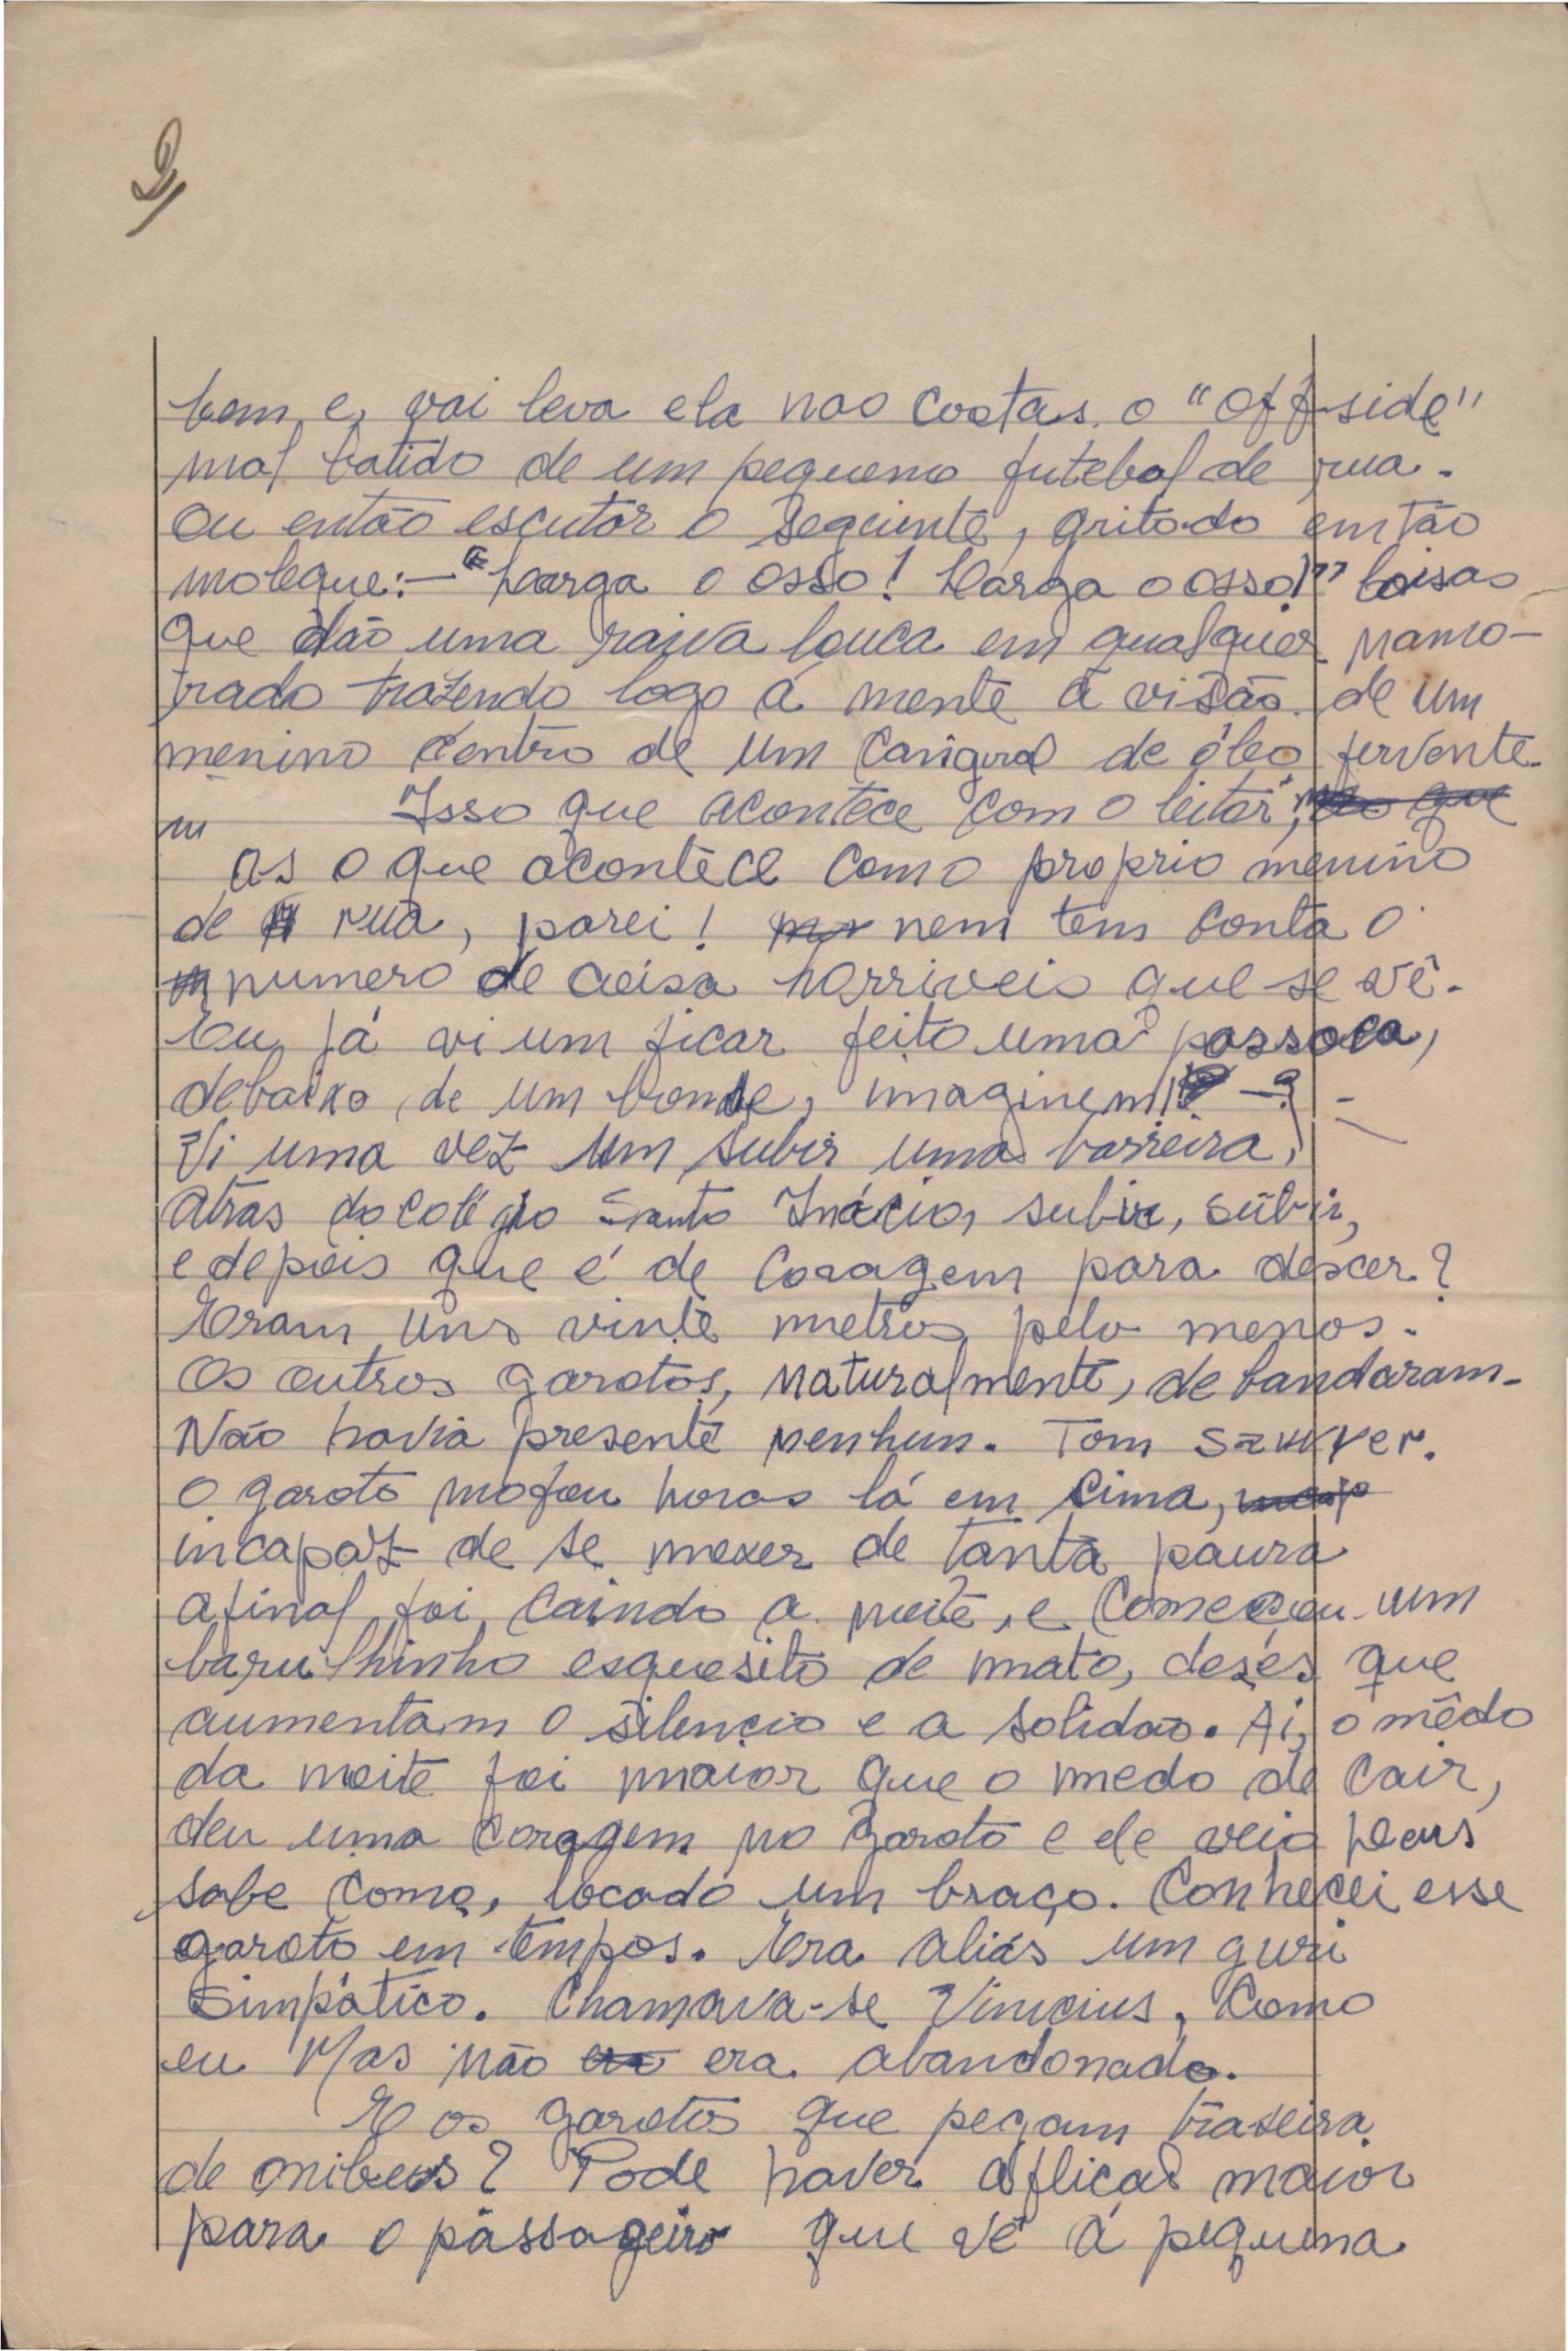 2,
bem, e, vai leva ela nas costas, o "off-side"
mal batido de um pequeno futebol de rua.
Ou então escutar o seguinte, gritado em tão
moleque:- "Larga o osso! Larga o osso!" Coisas
que dão uma raiva louca em qualquer namo-
rado trazendo logo á mente a visão de um
menino dentro de um de óleo fervente.
Isso que acontece com o leitor, mas o que
m
as o que acontece com o proprio menino
de rua, parei! nem tem conta o
numero de coisa horriveis que se vê.
Eu já vi um ficar feito uma passoca,
debaixo de um bonde, imaginem!
Vi uma vez um subir uma barreira,
atrás do colégio Santo Inácio, subiu, subiu,
e depois que é de coragem para descer?
Eram uns vinte metros pelo menos.
Os outros garotos, naturalmente, debandaram.
Não havia presente nenhum. Tom Sawyer.
O garoto mofou horas lá em cima, incap
incapaz de se mexer de tanta paura
afinal foi caindo a noite, e começou um
barulhinho esquesito de mato, desses que
aumentam o silencio e a solidão. Aí, o mêdo
da noite foi maior que o medo de cair,
deu uma coragem no garoto e ele veio Deus
sabe como, socado um braço. Conheci esse
garoto em tempos. Era aliás um guri
simpático. Chamava-se Vinicius, como
eu Mas não era abandonado.
E os garotos que pegam traseira
de onibus? Pode haver aflicão maior
para o passageiro que vê a pequena